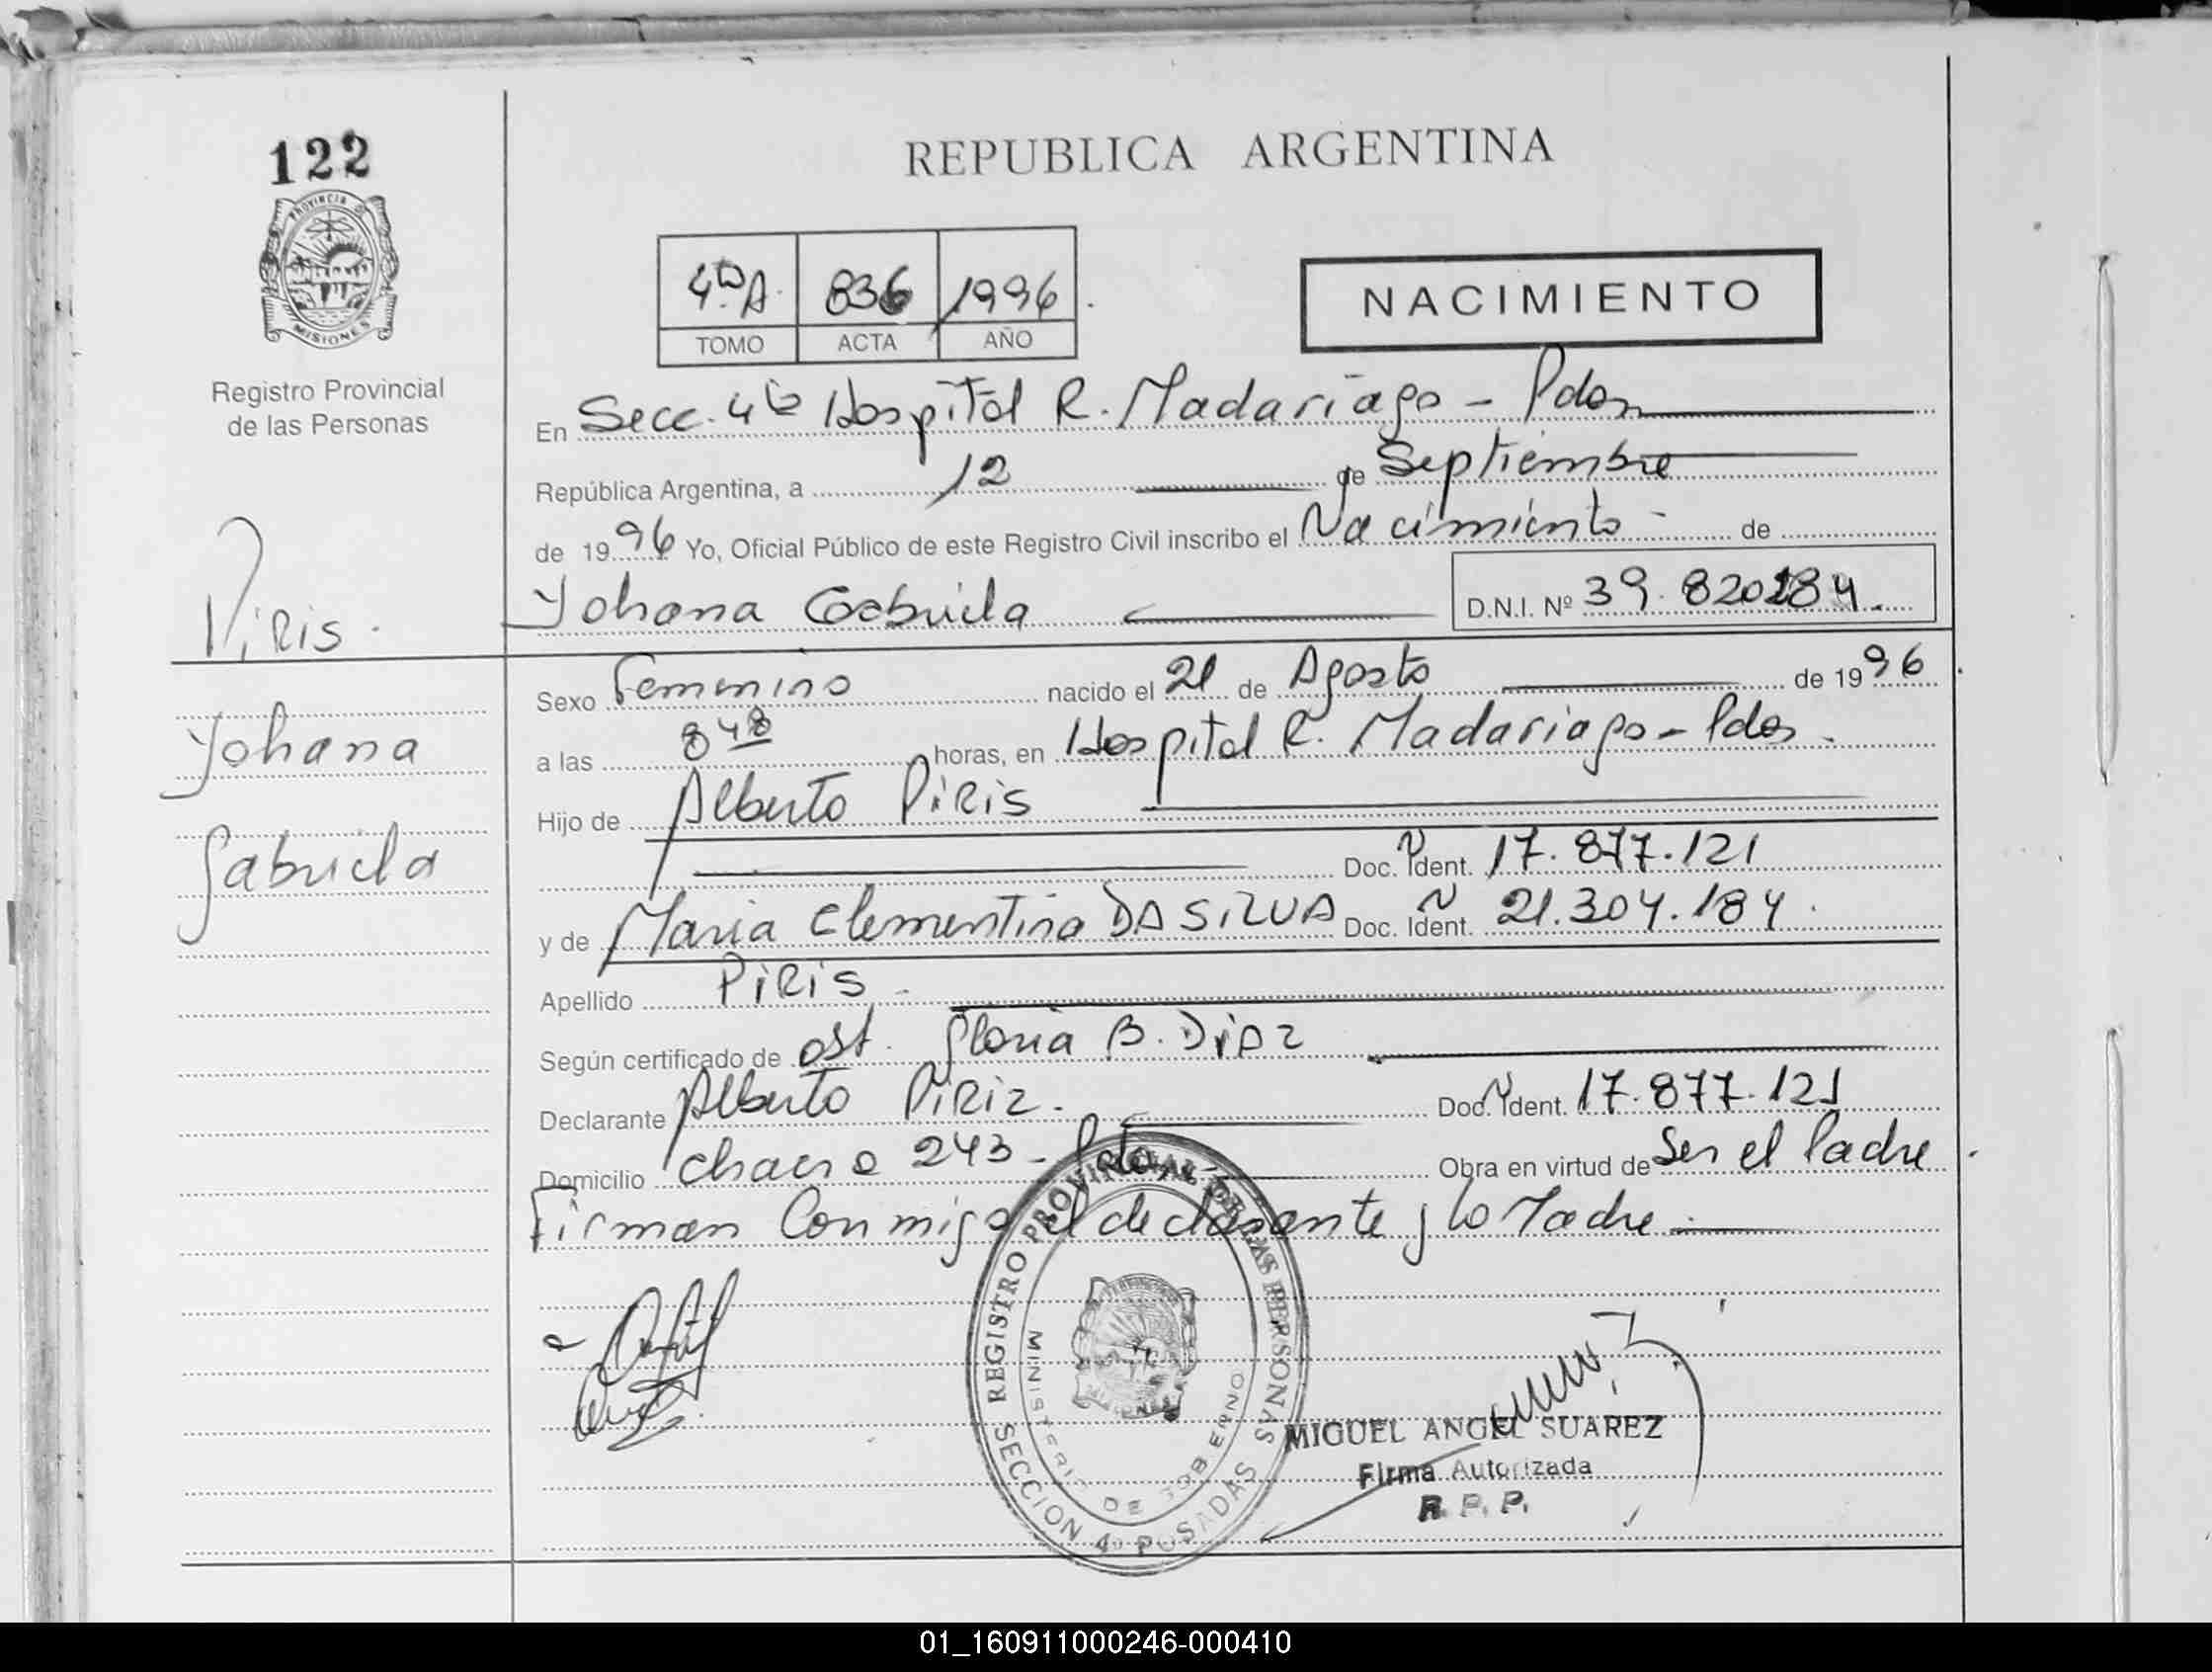 122
PROVINCIA DE
MISIONES
Registro Provincial
de las Personas
Piris.
Yohana
Gabriela
REPUBLICA ARGENTINA
4ta A. 836 1996
TOMO ACTA AÑO
NACIMIENTO
En Secc. 4ta Hospital R. Madariaga - Pdas
República Argentina, a 12 de Septiembre
de 1996 Yo, Oficial Público de este Registro Civil inscribo el Nacimiento - de
Yohana Gabriela D.N.I. Nº 39.820284.
Sexo Femenino nacido el 21 de Agosto de 1996
a las 8 48 horas, en Hospital R. Madariaga - Pdas.
Hijo de Alberto Piris
Doc. Ident. 17.877.121
y de Maria Clementina DA SILVA Doc. Ident. 21.304.184.
Apellido Piris -
Según certificado de ost. Gloria B. Diaz
Declarante Alberto Piriz. Doc. Ident. 17.877.121
Domicilio chacra 243 - Pdas - Obra en virtud de Ser el Padre.
Firman Conmigo el declarante y la Madre.-
REGISTRO PROVINCIAL DE LAS PERSONAS
MINISTERIO DE GOBIERNO
SECCION 4ª POSADAS
MISIONES
MIGUEL ANGEL SUAREZ
Firma Autorizada
R. P. P.
01_160911000246-000410